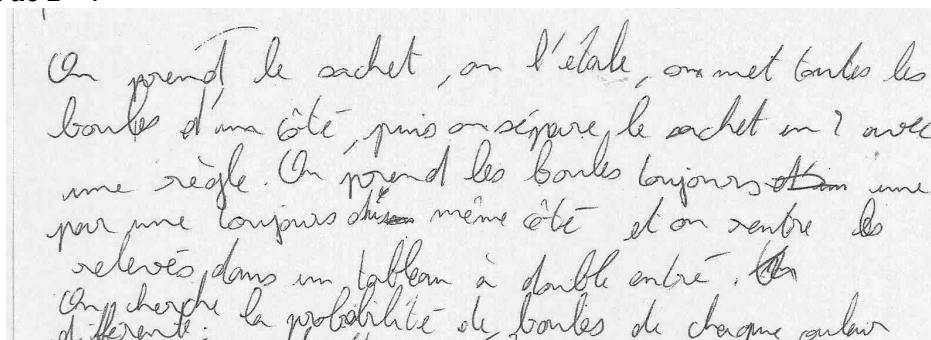 On prend le sachet, on l'étale, on met toutes les
boules d'un côté, puis on sépare le sachet en 2 avec
une règle. On prend les boules toujours une
par une toujours du même côté et on rentre les
relevés dans un tableau à double entré.
On cherche la probabilité de boules de chaque couleur
différente.